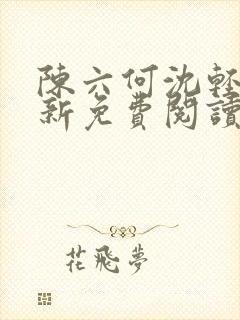 陳六何沈輕
新免費閱讀
花飛夢